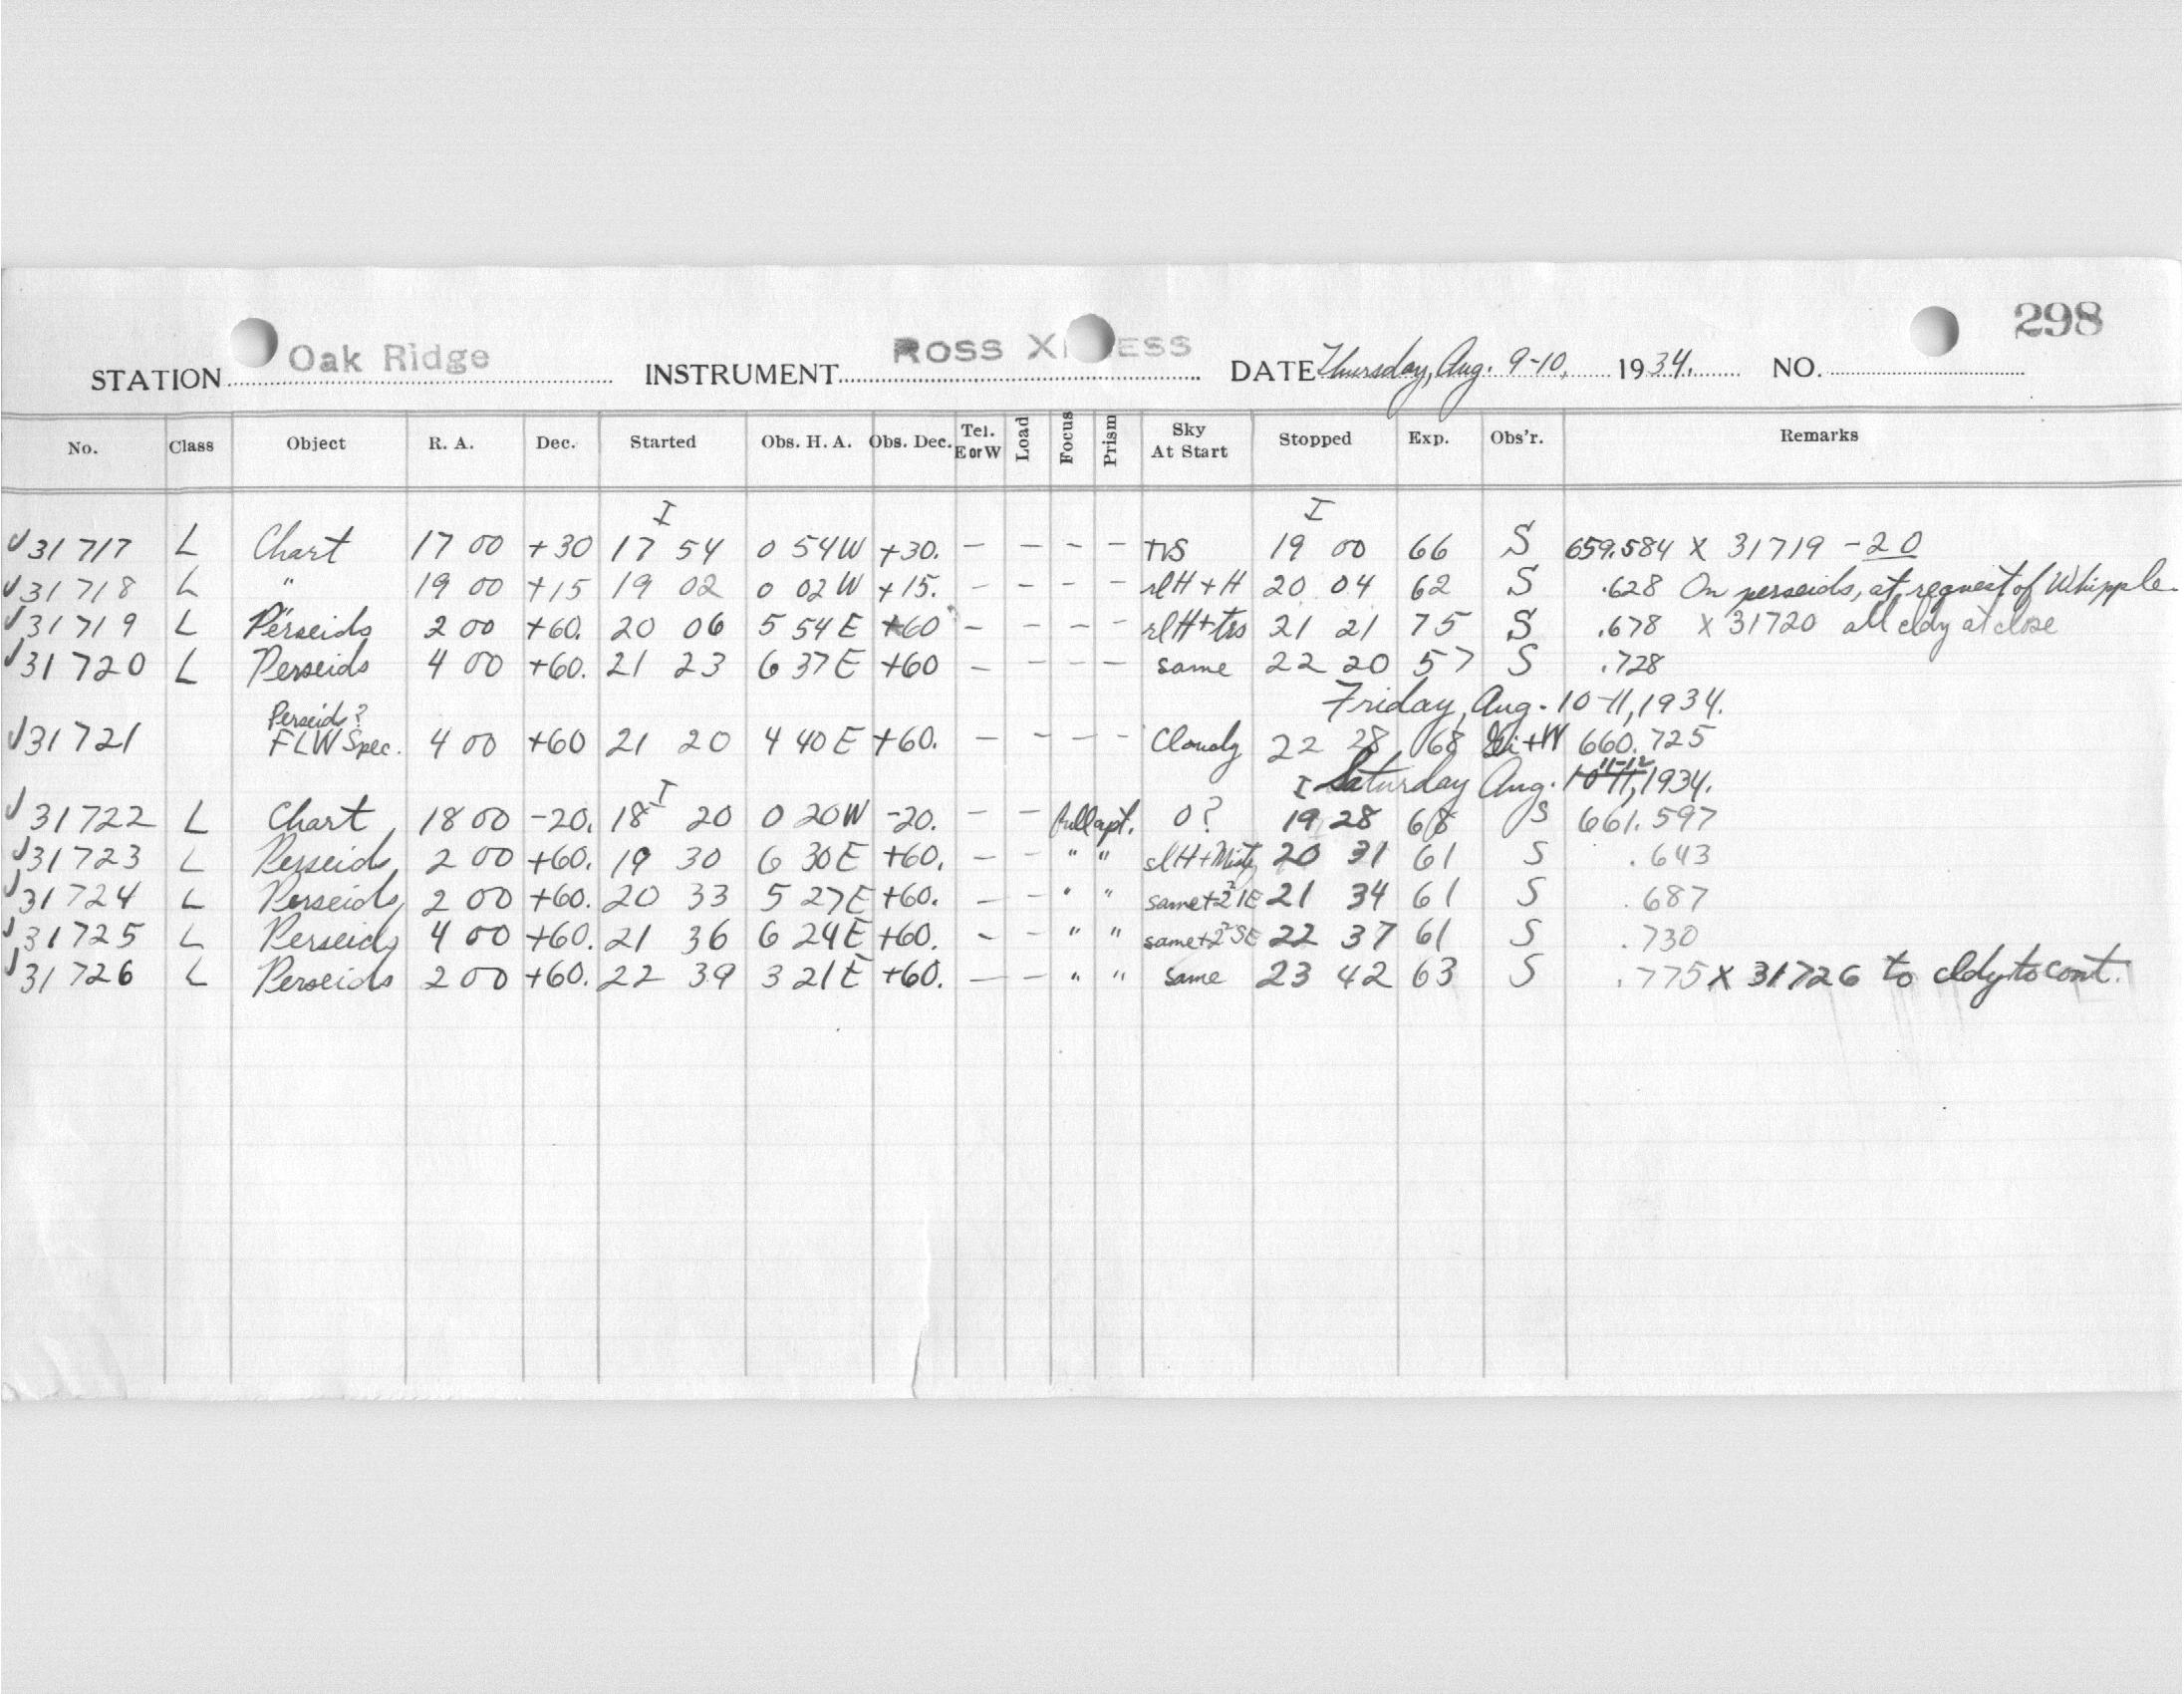 298
STATION Oak Ridge INSTRUMENT ROSS X ESS DATE Thursday, Aug. 9-10, 1934. NO.
No. Class Object R. A. Dec. Started Obs. H. A. Obs. Dec. Tel. E or W Load Focus Prism Sky At Start Stopped Exp. Obs'r. Remarks
I I
√31717 L Chart 17 00 +30 17 54 0 54W +30. - - - - 19 00 66 S 659.584 X 31719 -20
√31718 L " 19 00 +15 19 02 0 02W +15. - - - - H + H 20 04 62 S .628 On perseids, at request of Whipple
√31719 L Perseids 2 00 +60. 20 06 5 54E +60 - - - - 21 21 75 S .678 X 31720 all cldy at close
√31720 L Perseids 4 00 +60. 21 23 6 37E +60 - - - - same 22 20 57 S .728
Friday, Aug. 10-11, 1934.
√31721 Perseid? FLW Spec. 4 00 +60 21 20 4 40E +60. - - - - Cloudy 22 28 68 +W 660.725
I Saturday Aug. 10-11, 11-12 1934.
I
√31722 L Chart 18 00 -20. 18 20 0 20W -20. - - full apt. 0? 19 28 68 S 661.597
√31723 L Perseids 2 00 +60. 19 30 6 30E +60. - - " " slH+Misty 20 31 61 S .643
√31724 L Perseids 2 00 +60. 20 33 5 27E +60. - - " " same+2²1E 21 34 61 S .687
√31725 L Perseids 4 00 +60. 21 36 6 24E +60. - - " " same+2²SE 22 37 61 S .730
√31726 L Perseids 2 00 +60. 22 39 3 21E +60. - - " " same 23 42 63 S .775 X 31726 to cldy to cont.